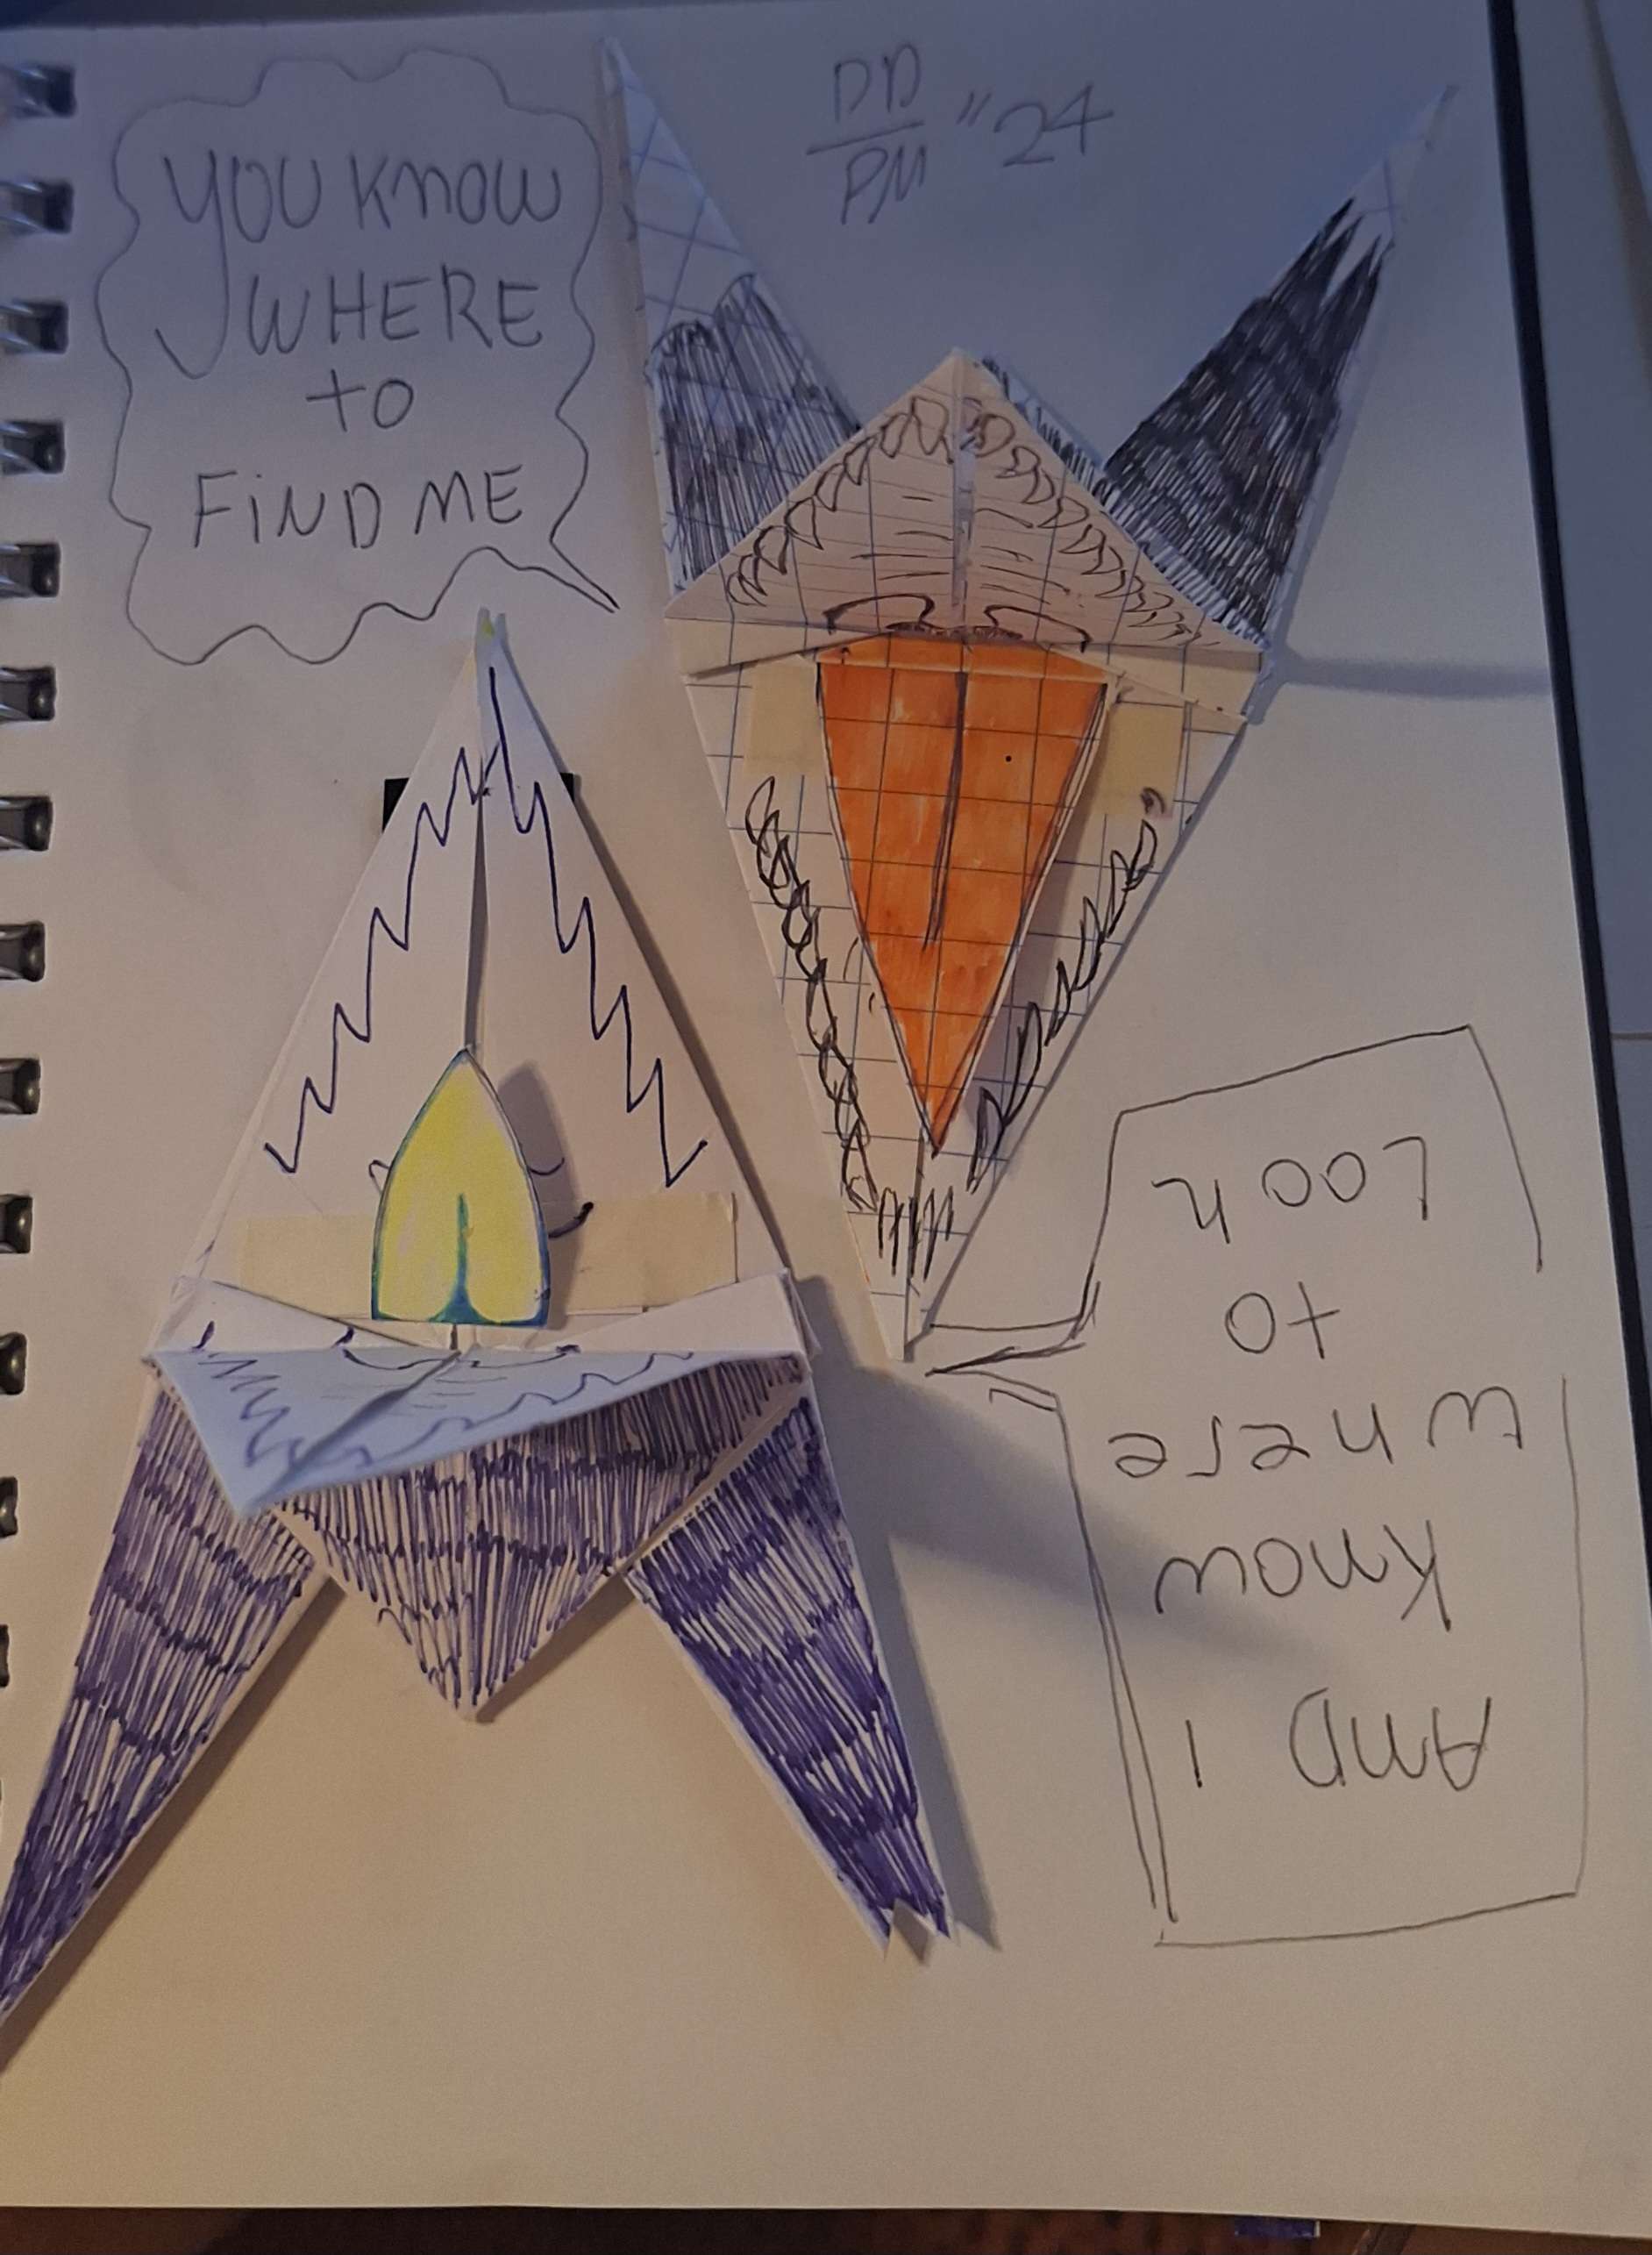 YOU KNOW
WHERE
to
FIND ME
DD
PM "24
AND I
KNOW
WHere
to
LOOk